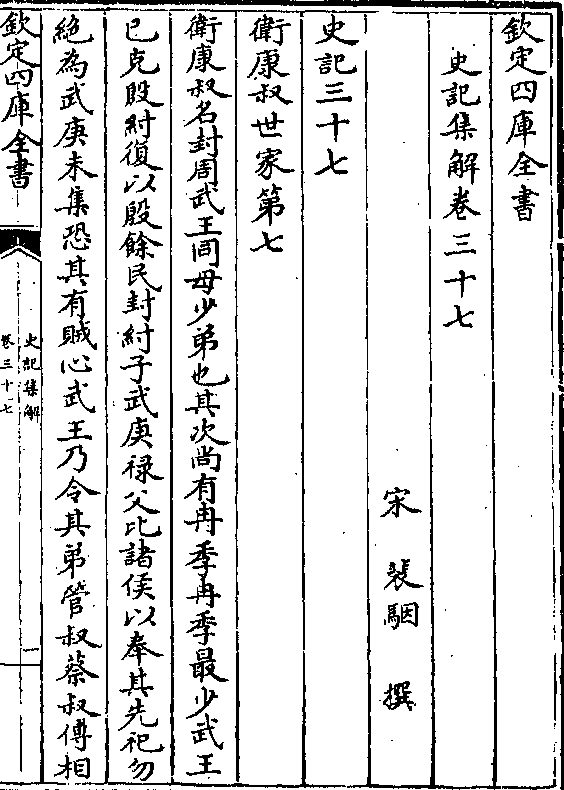 欽定四庫全書
史記集解卷三十七
宋 裴駰 撰
史記三十七
衛康叔世家第七
衛康叔名封周武王同母少弟也其次尚有冉季冉季最少武王
已克殷紂復以殷餘民封紂子武庚祿父比諸侯以奉其先祀勿
絶為武庚未集恐其有賊心武王乃令其弟管叔蔡叔傅相
欽定四庫全書
史記集解
卷三十七
一